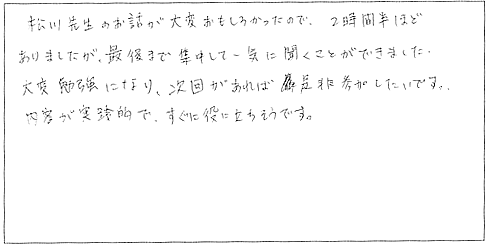 松川先生のお話が大変おもしろかったので、2時間半ほど
ありましたが、最後まで集中して一気に聞くことができました。
大変勉強になり、次回があれば是非参加したいです。
内容が実践的で、すぐに役に立ちそうです。